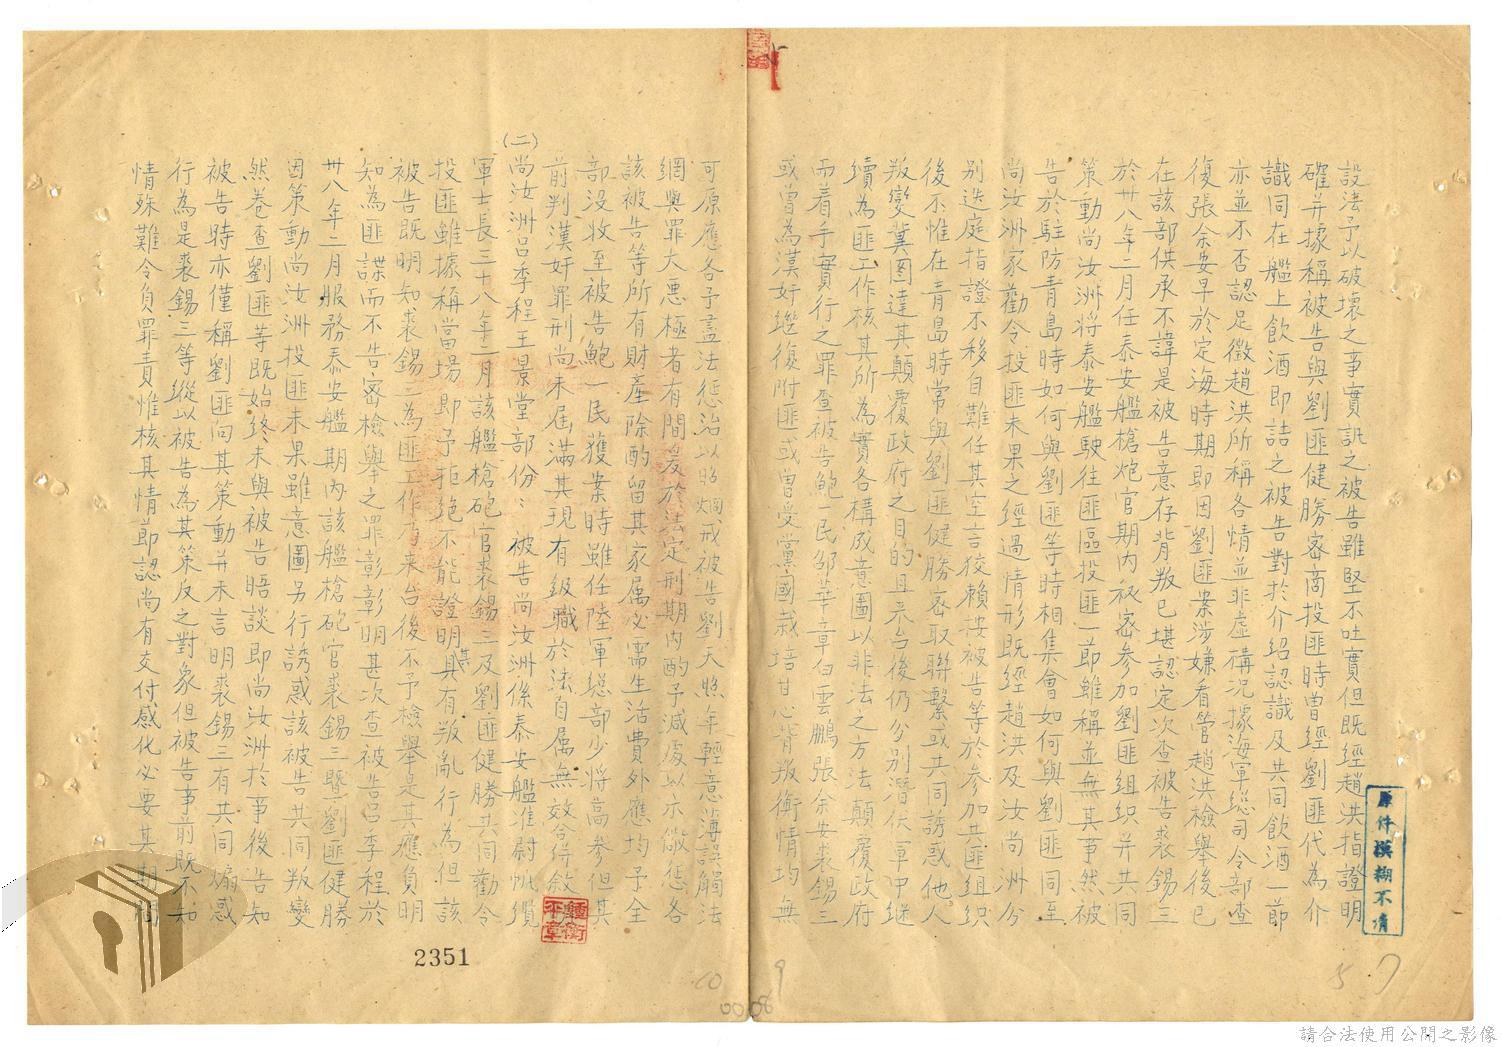 設法予以破壞之事實訊之被告雖堅不吐實但既經趙洪指證明
確并據稱被告與劉匪健勝密商投匪時曾經劉匪代為介
識同在艦上飲酒即詰之被告對於介紹認識及共同飲酒一節
亦並不否認足徵趙洪所稱各情並非虛構況據海軍總司令部查
復張余安早於定海時期即因劉匪案涉嫌看管趙洪檢舉後已
在該部供承不諱是被告意存背叛已堪認定次查被告裘錫三
於卅八年二月任泰安艦槍炮官期內秘密參加劉匪組织并共同
策動尚汝洲將泰安艦駛往匪區投匪一節雖稱並無其事然被
告於駐防青島時如何與劉匪等時相集會如何與劉匪同至
尚汝洲家勸令投匪未果之經過情形既經趙洪及汝尚洲分
別迭庭指證不移自難任其空言狡賴按被告等於參加共匪組织
後不惟在青島時常與劉匪健勝密取聯繫或共同誘惑他人
叛變冀图達其顛覆政府之目的且來台後仍分別潛伏軍中继
續為匪工作核其所為實各構成意圖以非法之方法顛覆政府
而着手實行之罪查被告鮑一民邹華章白雲鵬張余安裘錫三
或曾為漢奸繼復附匪或曾受黨國栽培甘心背叛衡情均無
可原應各予盡法惩治以昭烱戒被告劉天照年輕意薄誤觸法
網與罪大惡極者有間爰於法定刑期內酌予減處以示儆惩各
該被告等所有財產除酌留其家属必需生活費外應均予全
部没收至被告鮑一民獲案時雖任陸軍總部少將高参但其
前判漢奸罪刑尚未屆滿其現有級職於法自属無效合併敘
(二)尚汝洲吕季程王景堂部份：被告尚汝洲係泰安艦准尉帆纜
軍士長三十八年二月該艦槍砲官裘錫三及劉匪健勝共同勸令
投匪雖據稱當場即予拒絶不能證明其具有叛亂行為但該
被告既明知裘錫三為匪工作乃來台後不予檢舉是其應負明
知為匪諜而不告密檢舉之罪彰彰明甚次查被告吕季程於
卅八年二月服務泰安艦期內該艦槍砲官裘錫三暨劉匪健勝
因策動尚汝洲投匪未果雖意圖另行誘惑該被告共同叛變
然卷查劉匪等既始終未與被告晤談即尚汝洲於事後告知
被告時亦僅稱劉匪向其策動并未言明裘錫三有共同煽惑
行為是裘錫三等縱以被告為其策反之對象但被告事前既不知
情殊難令負罪責惟核其情節認尚有交付感化必要其期間
原件模糊不清
鍾衡平章
2351
9
10
0008
57
請合法使用公開之影像